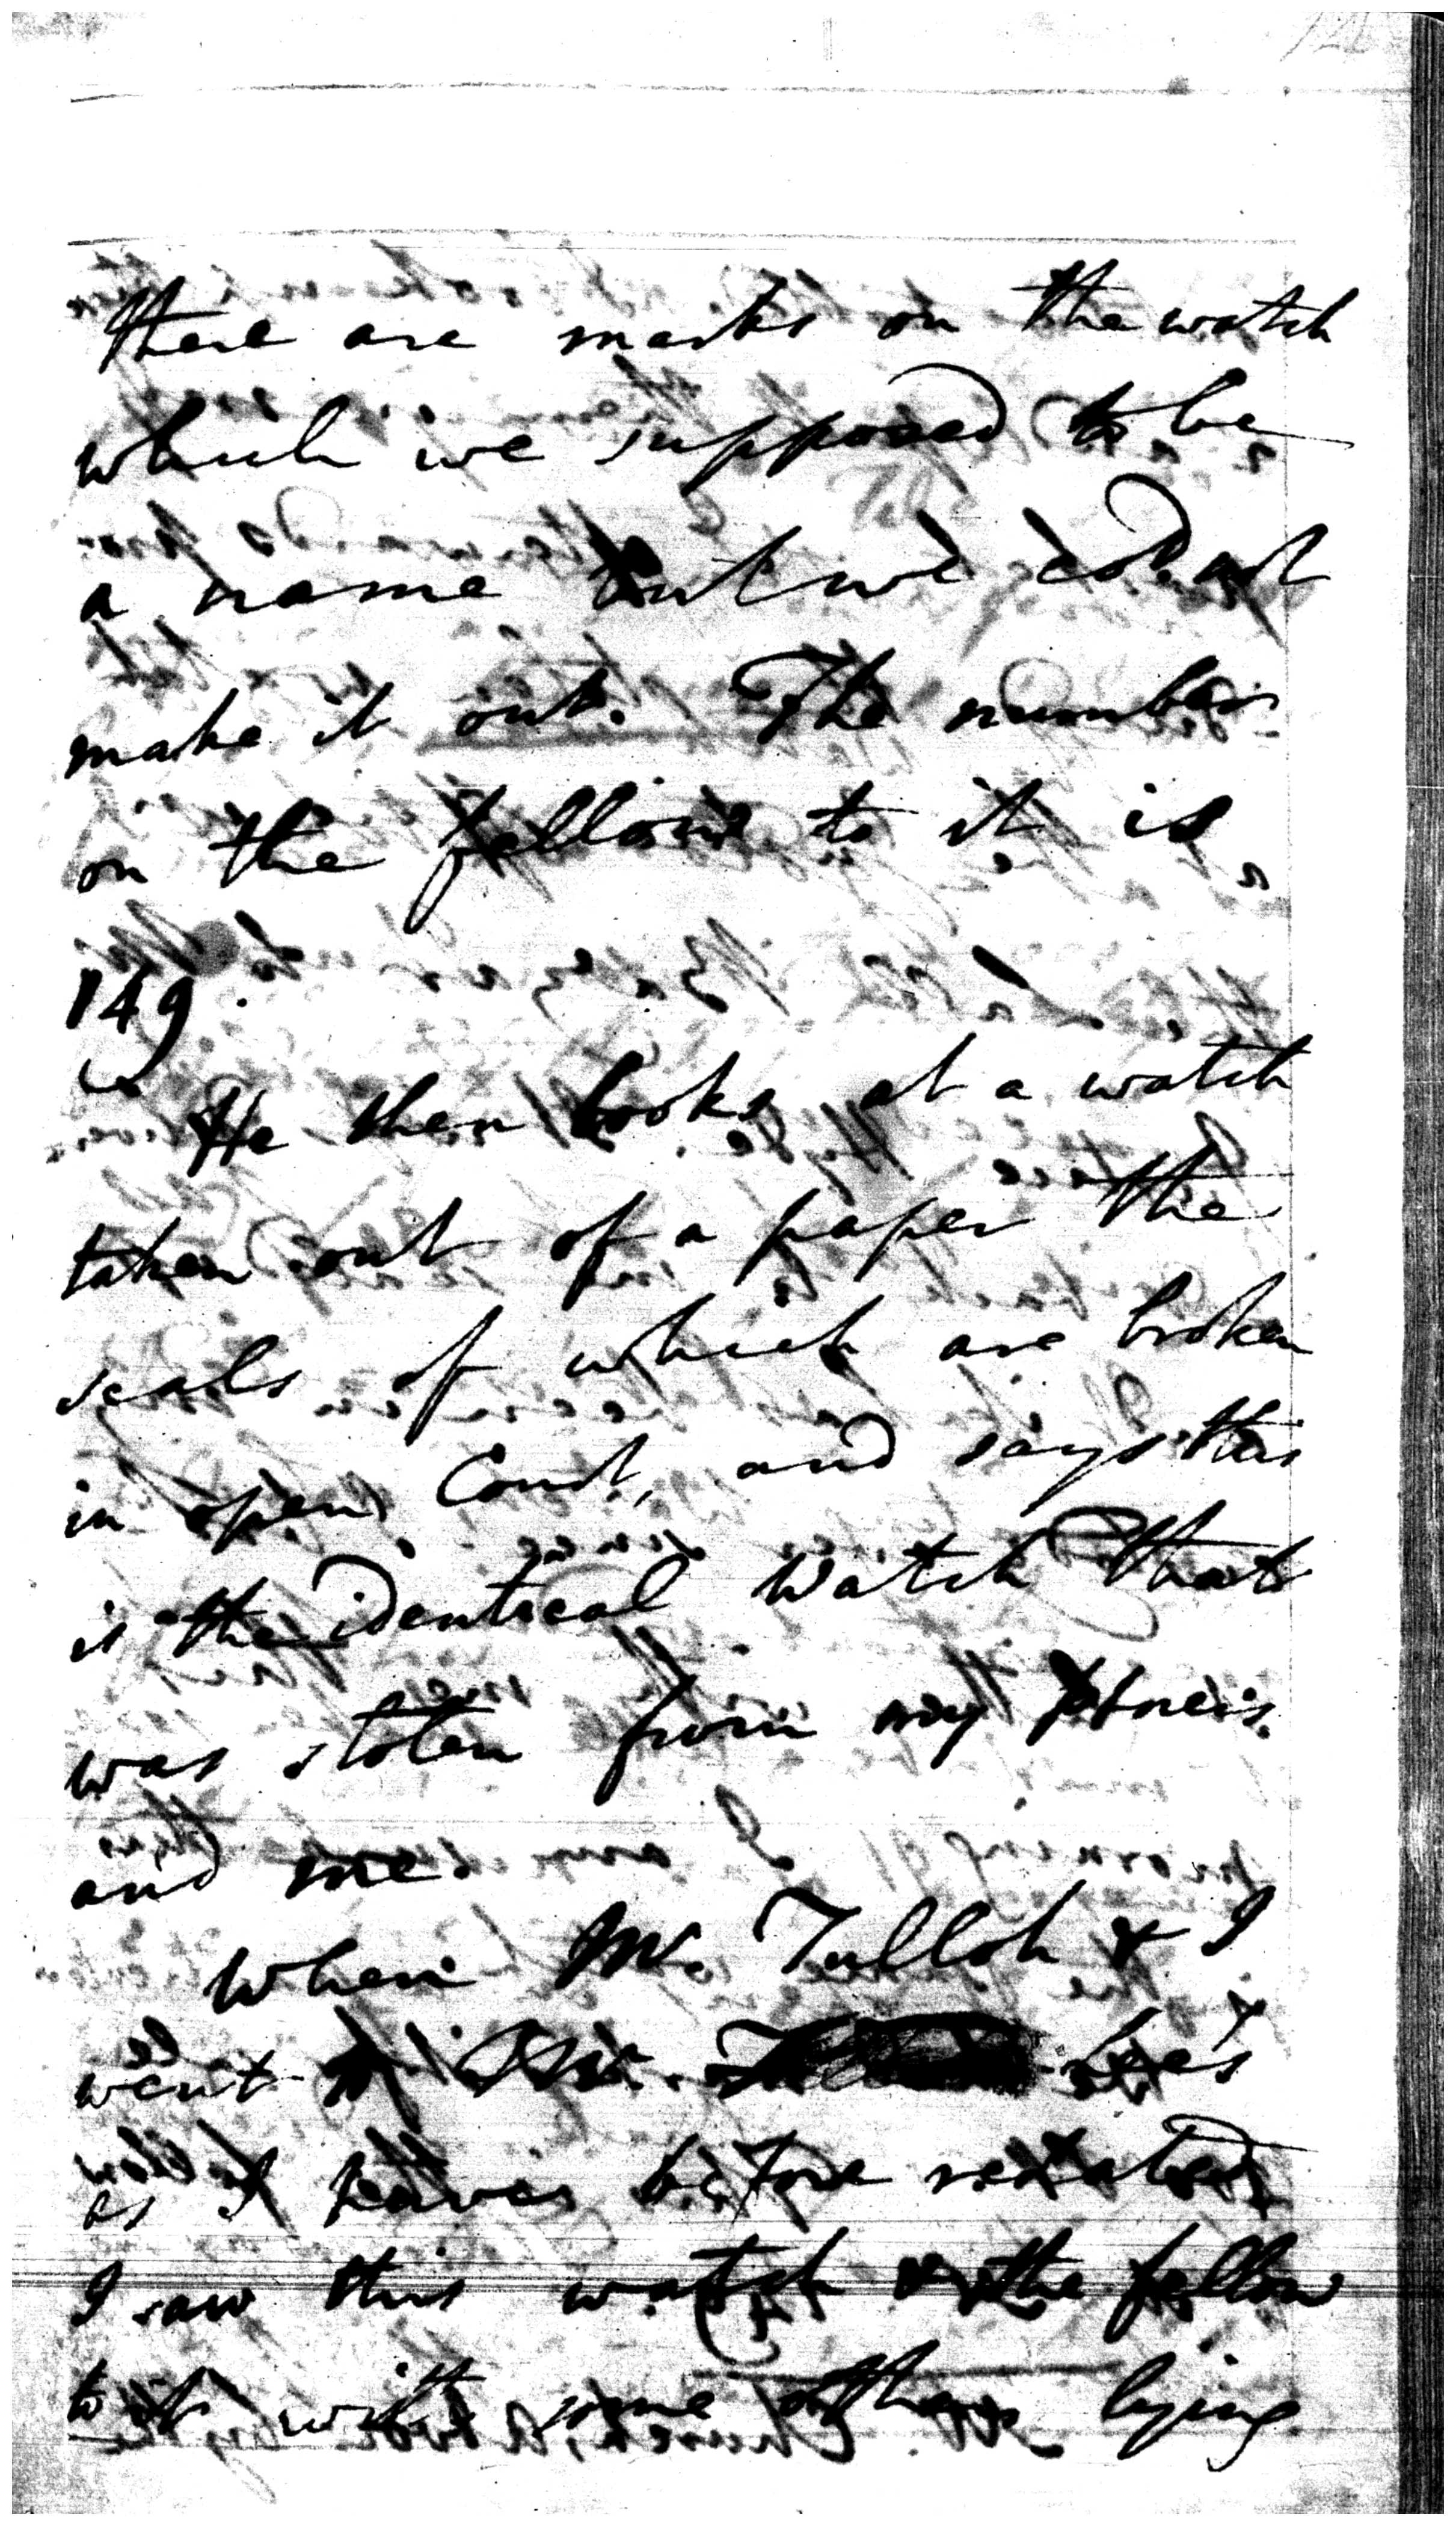 there are marks on the watch
which we supposed to be
a name but we cod. not
make it out. The number
on the fellow to it is
149.
He then looks at a watch
taken out of a paper the
seals of which are broken
in open Court, and says this
is the identical Watch that
was stolen from my
and me.
When Mr. Tulloh & I
went to Mr. Lee's
as I have before related
I saw this watch & the fellow
to it with some others lying